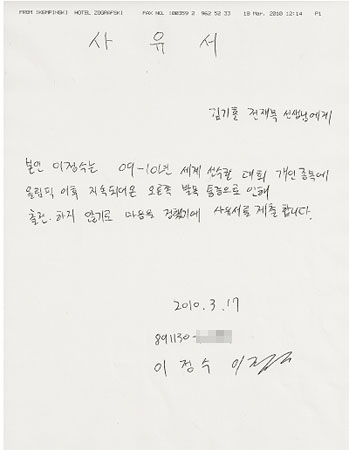 FROM :KEMPINSKI HOTEL ZOGRAFSKI FAX NO. :00359 2 962 52 33 18 Mar. 2010 12:14 P1
사 유 서
김기훈 전재목 선생님에게
본인 이정수는 09-10년 세계 선수권 대회 개인종목에
올림픽 이후 지속되어온 오른쪽 발목 통증으로 인해
출전 하지 않기로 마음을 정했기에 사유서를 제출합니다.
2010.3.17
891130-
이 정 수